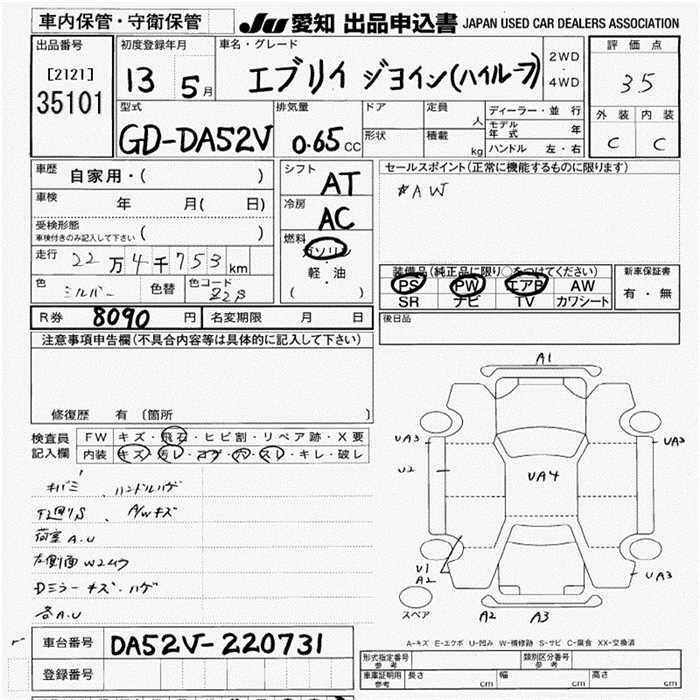 車内保管・守衛保管
JU 愛知 出品申込書 JAPAN USED CAR DEALERS ASSOCIATION
出品番号
[2121]
35101
初度登録年月
13 5月
車名・グレード
エブリイ ジョイン(ハイルーフ)
2WD
・
4WD
評価点
35
外装 内装
C C
型式
GD-DA52V
排気量
0.65 CC
ドア
形状
定員
人
積載
kg
ディーラー・並行
モデル年式 年
ハンドル 左・右
車歴
自家用・( )
車検
年 月( 日)
受検形態
車検付きのみ記入して下さい ( )
走行
22万4千753km
色
シルバー
色替
色コード
Z2S
シフト
AT
冷房
AC
燃料
ガソリン
軽・油
( )
セールスポイント(正常に機能するものに限ります)
AW
装備品(純正品に限り○をつけてください)
PS PW エアB AW
SR ナビ TV カワシート
新車保証書
有・無
R券 8090 円 名変期限 月 日
後日品
注意事項申告欄(不具合内容等は具体的に記入して下さい)
修復歴 有〔箇所 〕
検査員
記入欄
FW キズ・飛石・ヒビ割・リペア跡・X要
内装 キズ・汚レ・コゲ・穴・スレ・キレ・破レ
キバミ、ハンドルハゲ
下廻りS、A/Wキズ
荷室A.U
左側面W2ムラ
Dミラーキズ・ハゲ
各A.U
A1
UA3
UA3
U2
UA4
U1
A2
UA3
スペア
A2
A3
A-キズ E-エクボ U-凹み W-補修跡 S-サビ C-腐食 XX-交換済
車台番号 DA52V-220731
登録番号
形式指定番号
参考
類別区分番号
参考
車庫証明用
参考
長さ cm 幅 cm 高さ cm